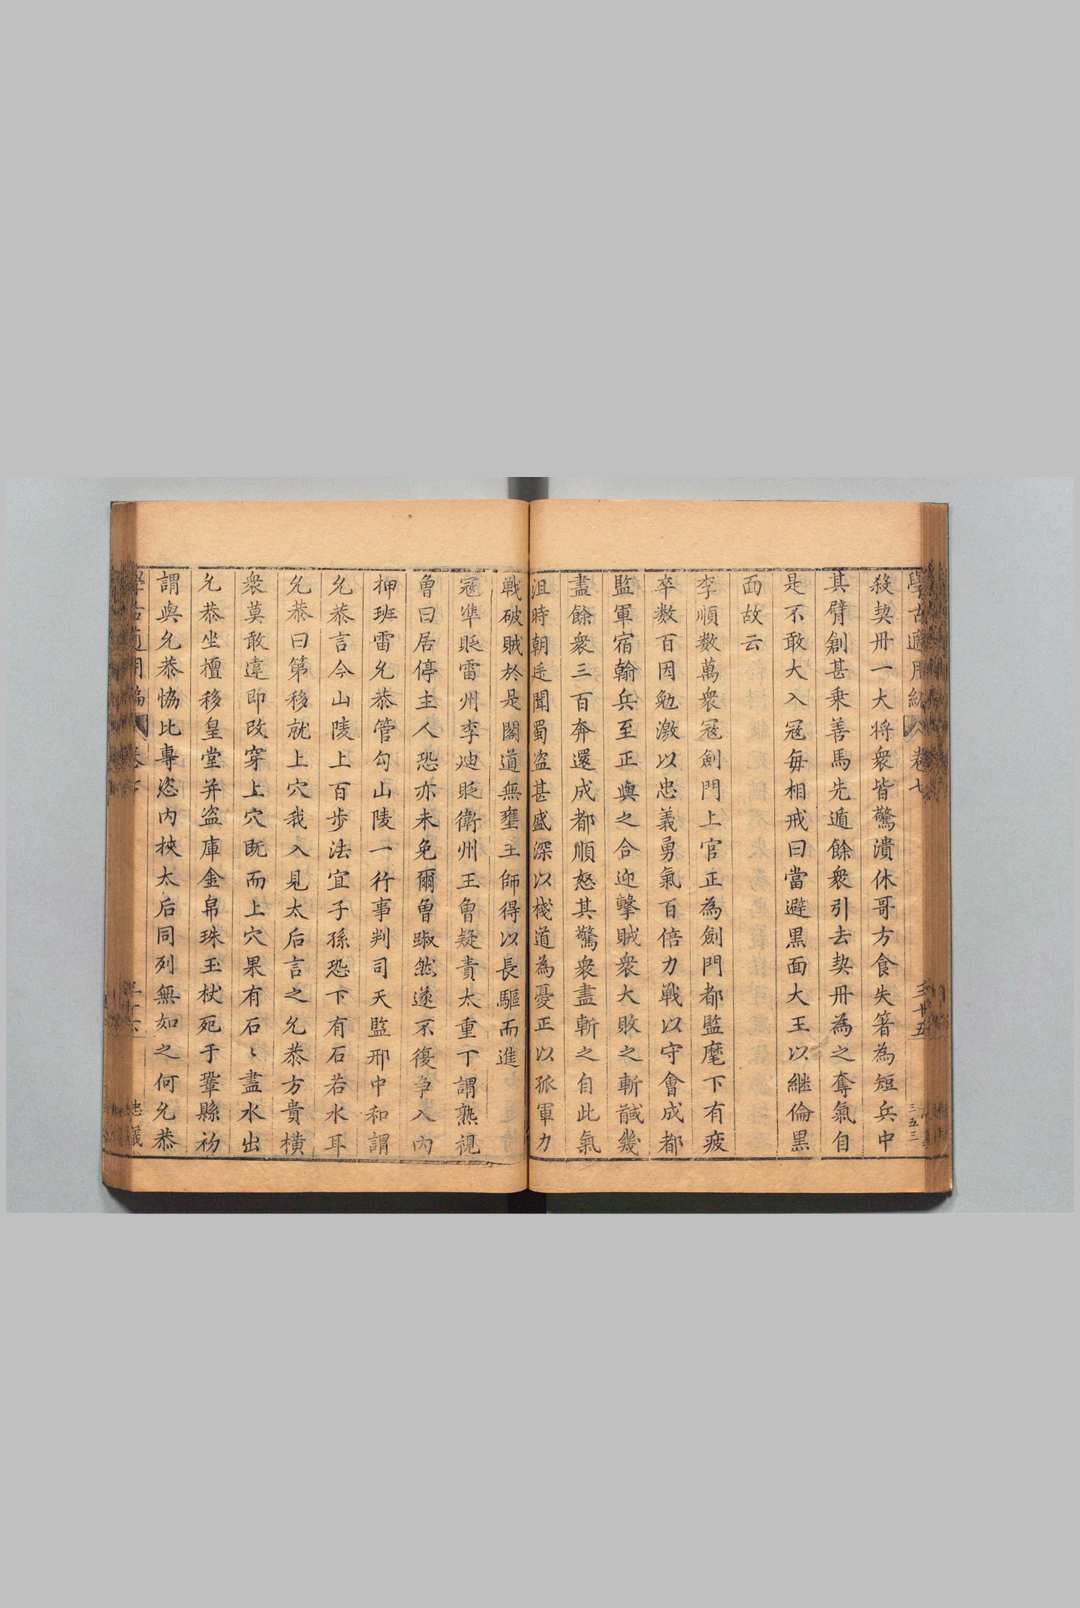 學古適用編 卷七 三十五 三五三
殺契丹一大將衆皆驚潰休哥方食失箸為短兵中
其臂創甚乗善馬先遁餘衆引去契丹為之奪氣自
是不敢大入冦毎相戒曰當避黒面大王以継倫黒
面故云
李順數萬衆冦劍門上官正為劍門都監麾下有疲
卒数百因勉激以忠義勇氣百倍力戰以守會成都
監軍宿翰兵至正與之合迎擊賊衆大敗之斬馘幾
盡餘衆三百奔還成都順怒其驚衆盡斬之自此氣
沮時朝廷聞蜀盗甚盛深以棧道為憂正以孤軍力
戰破賊於是閣道無壅王師得以長驅而進
冦準貶雷州李廸貶衡州王曾疑責太重丁謂熟視
曾曰居停主人恐亦未免爾曾踧然遂不復争入内
押班雷允恭管勾山陵一行事判司天監邢中和謂
允恭言今山陵上百步法宜子孫恐下有石若水耳
允恭曰第移就上穴我入見太后言之允恭方貴横
衆莫敢違即改穿上穴既而上穴果有石〻盡水出
允恭坐檀移皇堂并盗庫金帛珠玉杖死于鞏縣初
謂與允恭恊比專恣内挾太后同列無如之何允恭
學古適用編 卷七
忠義